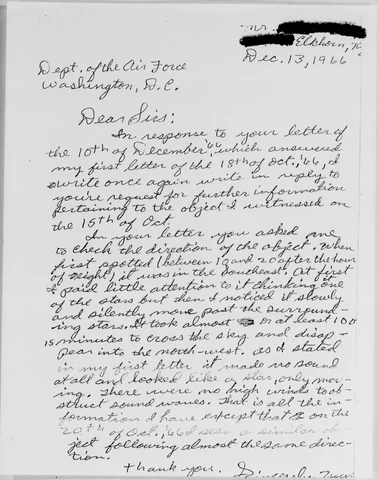 Mr.
Elkhorn,
Dec. 13, 1966
Dept. of the Air Force
Washington, D.C.
Dear Sirs:
In response to your letter of
the 10th of December, '66, which answered
my first letter of the 18th of Oct., '66, I
write once again write in reply to
you're request for further information
pertaining to the object I witnessed on
the 15th of Oct.
In your letter you asked me
to check the direction of the object. When
first spotted (between 12 and 20 after the hour
of eight) it was in the southeast. At first
I paid little attention to it thinking one
of the stars but then I noticed it slowly
and silently move past the surround-
ing stars. It took almost or at least 10
15 minutes to cross the sky and disap-
pear into the north-west. As I stated
in my first letter it made no sound
at all and looked like a star, only mov-
ing. There were no high winds to ob-
struct sound waves. That is all the in-
formation I have except that on the
20th of Oct., '66 I seen a similar ob-
ject following almost the same direc-
tion.
Thank you,
Sincerely